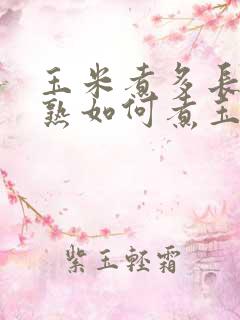 玉米煮多長
熟如何煮玉
紫玉輕霜